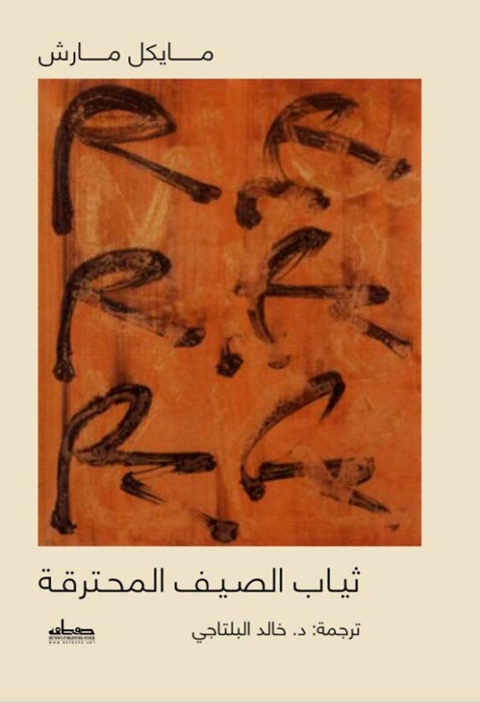 مايكل مارش
ثياب الصيف المحترقة
ترجمة: د. خالد البلتاجي